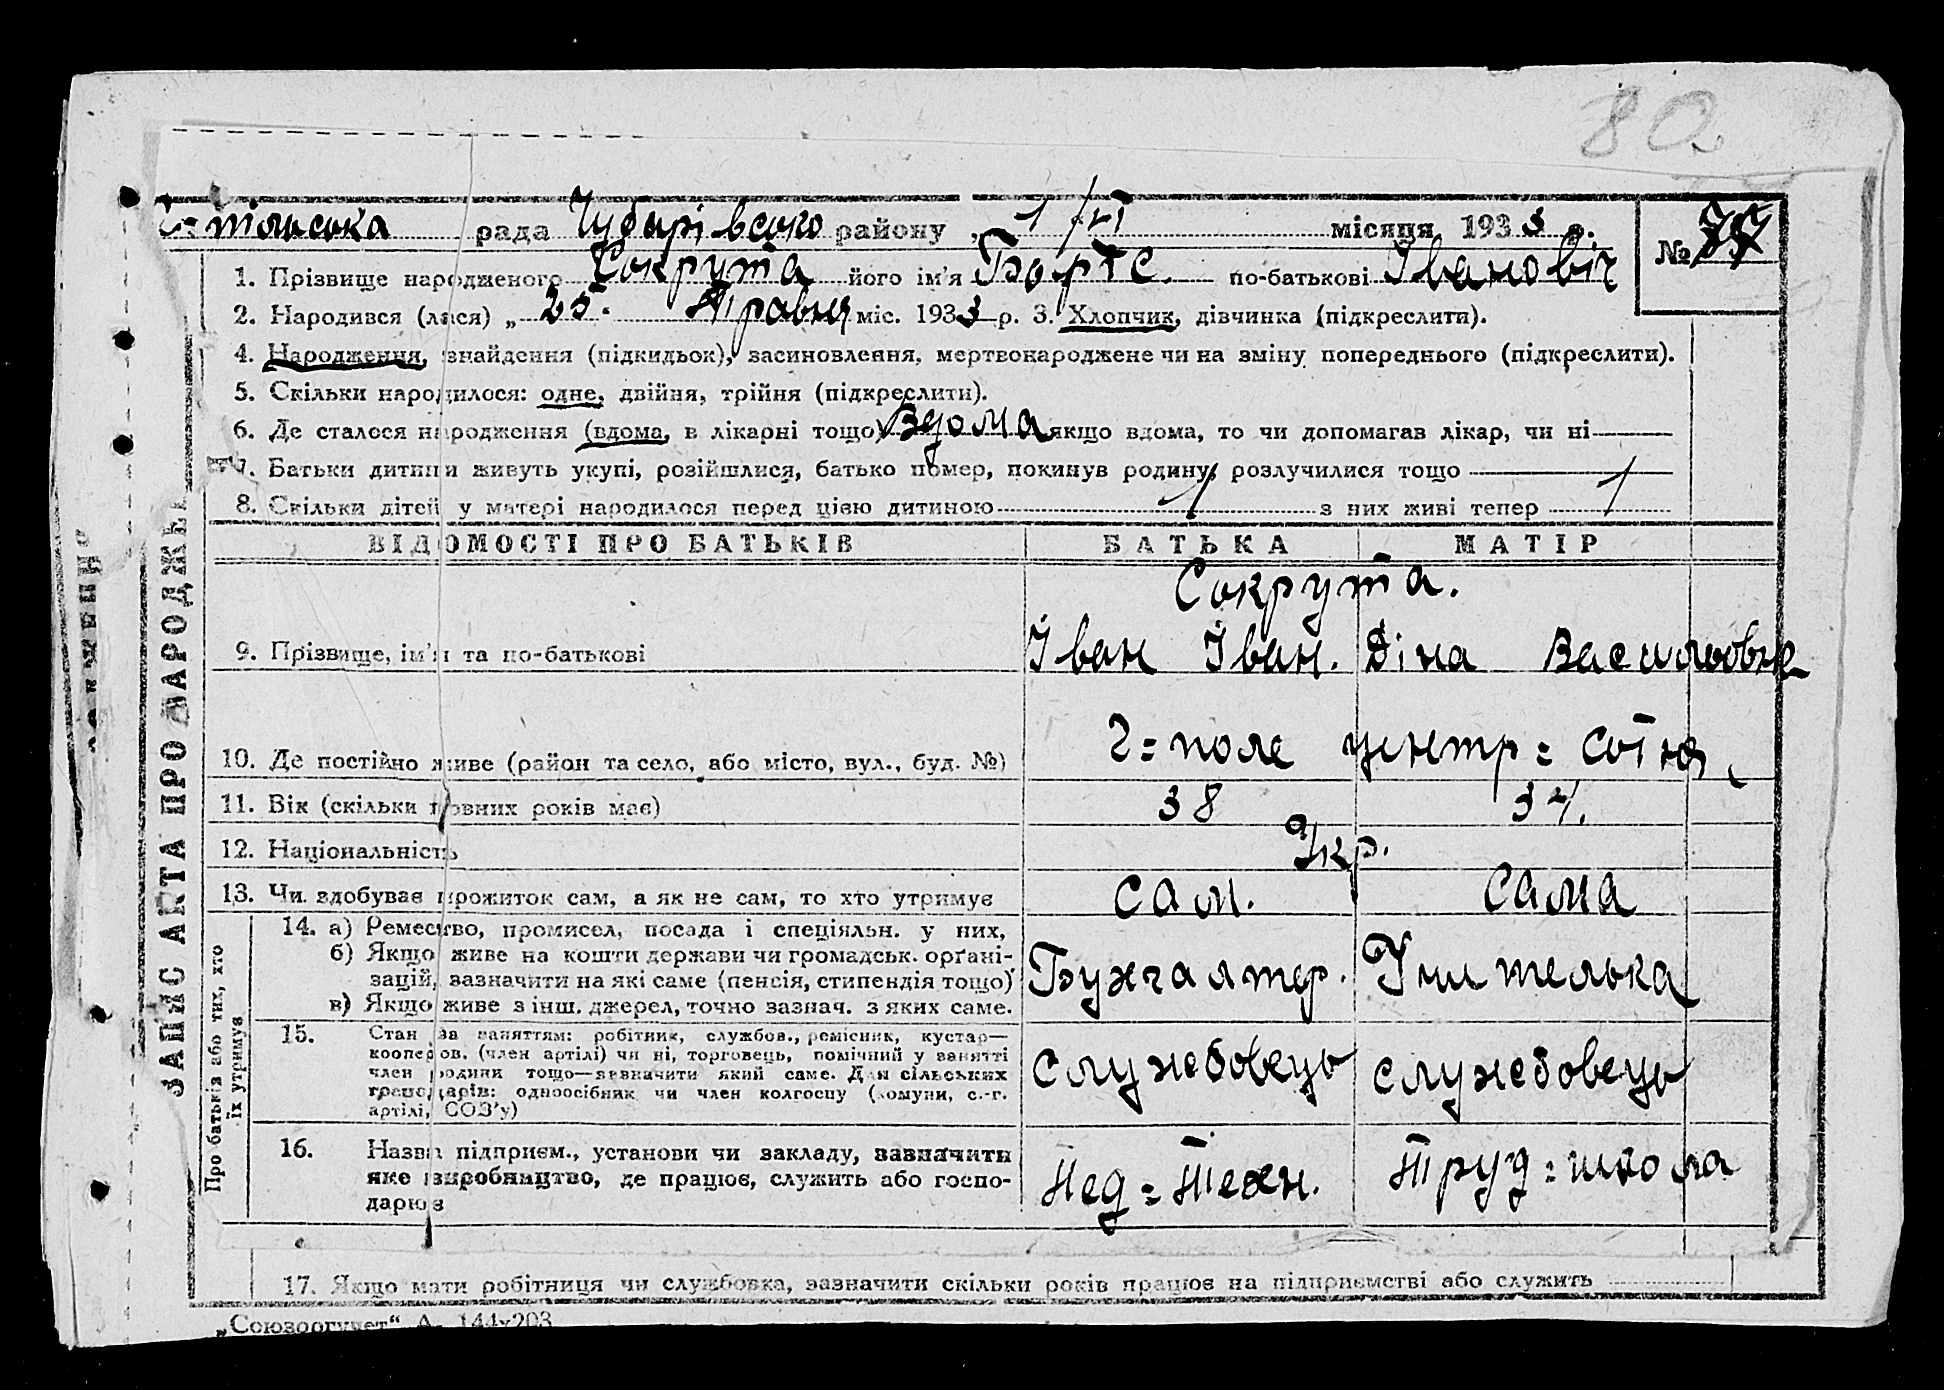 80
Г=пільська рада Чубарівсько району „ 1/VI місяця 1933 р. №
1. Прізвище народженого Сокрута його ім'я Боріс. по-батькові Івановіч
2. Народився (лася) „ 25. Травня міс. 1933 р. 3. Хлопчик, дівчинка (підкреслити).
4. Народження, знайдення (підкидьок), засиновлення, мертвонароджене чи на зміну попереднього (підкреслити).
5. Скільки народилося: одне, двійня, трійня (підкреслити).
6. Де сталося народження (вдома, в лікарні тощо) Вдома якщо вдома, то чи допомагав лікар, чи ні
7. Батьки дитини живуть укупі, розійшлися, батько помер, покинув родину, розлучилися тощо
8. Скільки дітей у матері народилося перед цією дитиною 1 з них живі тепер 1
ВІДОМОСТІ ПРО БАТЬКІВ БАТЬКА МАТІР
Сокрута.
9. Прізвище, ім'я та по-батькові Іван Іван. Діна Васильовна
10. Де постійно живе (район та село, або місто, вул., буд. №) Г=поле центр=сотня
11. Вік (скільки повних років має) 38 34.
12. Національність Укр.
13. Чи здобуває прожиток сам, а як не сам, то хто утримує сам. сама
ЗАПИС АКТА ПРО НАРОДЖЕН
Про батьків або тих, хто
їх утримує
14. а) Ремество, промисел, посада і спеціяльн. у них,
б) Якщо живе на кошти держави чи громадськ. орґані-
зацій, зазначити на які саме (пенсія, стипендія тощо)
в) Якщо живе з інш. джерел, точно зазнач. з яких саме.
Бухгалтер. Учителька
15. Стан за заняттям: робітник, службов., ремісник, кустар—
кооперов. (член артілі) чи ні, торговець, помічний у занятті
член родини тощо—зазначити який саме. Для сільських
господарів: одноосібник чи член колгоспу (комуни, с.-г.
артілі, СОЗ'у)
службовець службовець
16. Назва підприєм., установи чи закладу, зазначити
яке виробництво, де працює, служить або госпо-
дарює
Пед=Техн. Труд=школа
17. Якщо мати робітниця чи службовка, зазначити скільки років працює на підприємстві або служить
„Союзоргучет“ А. 144х203